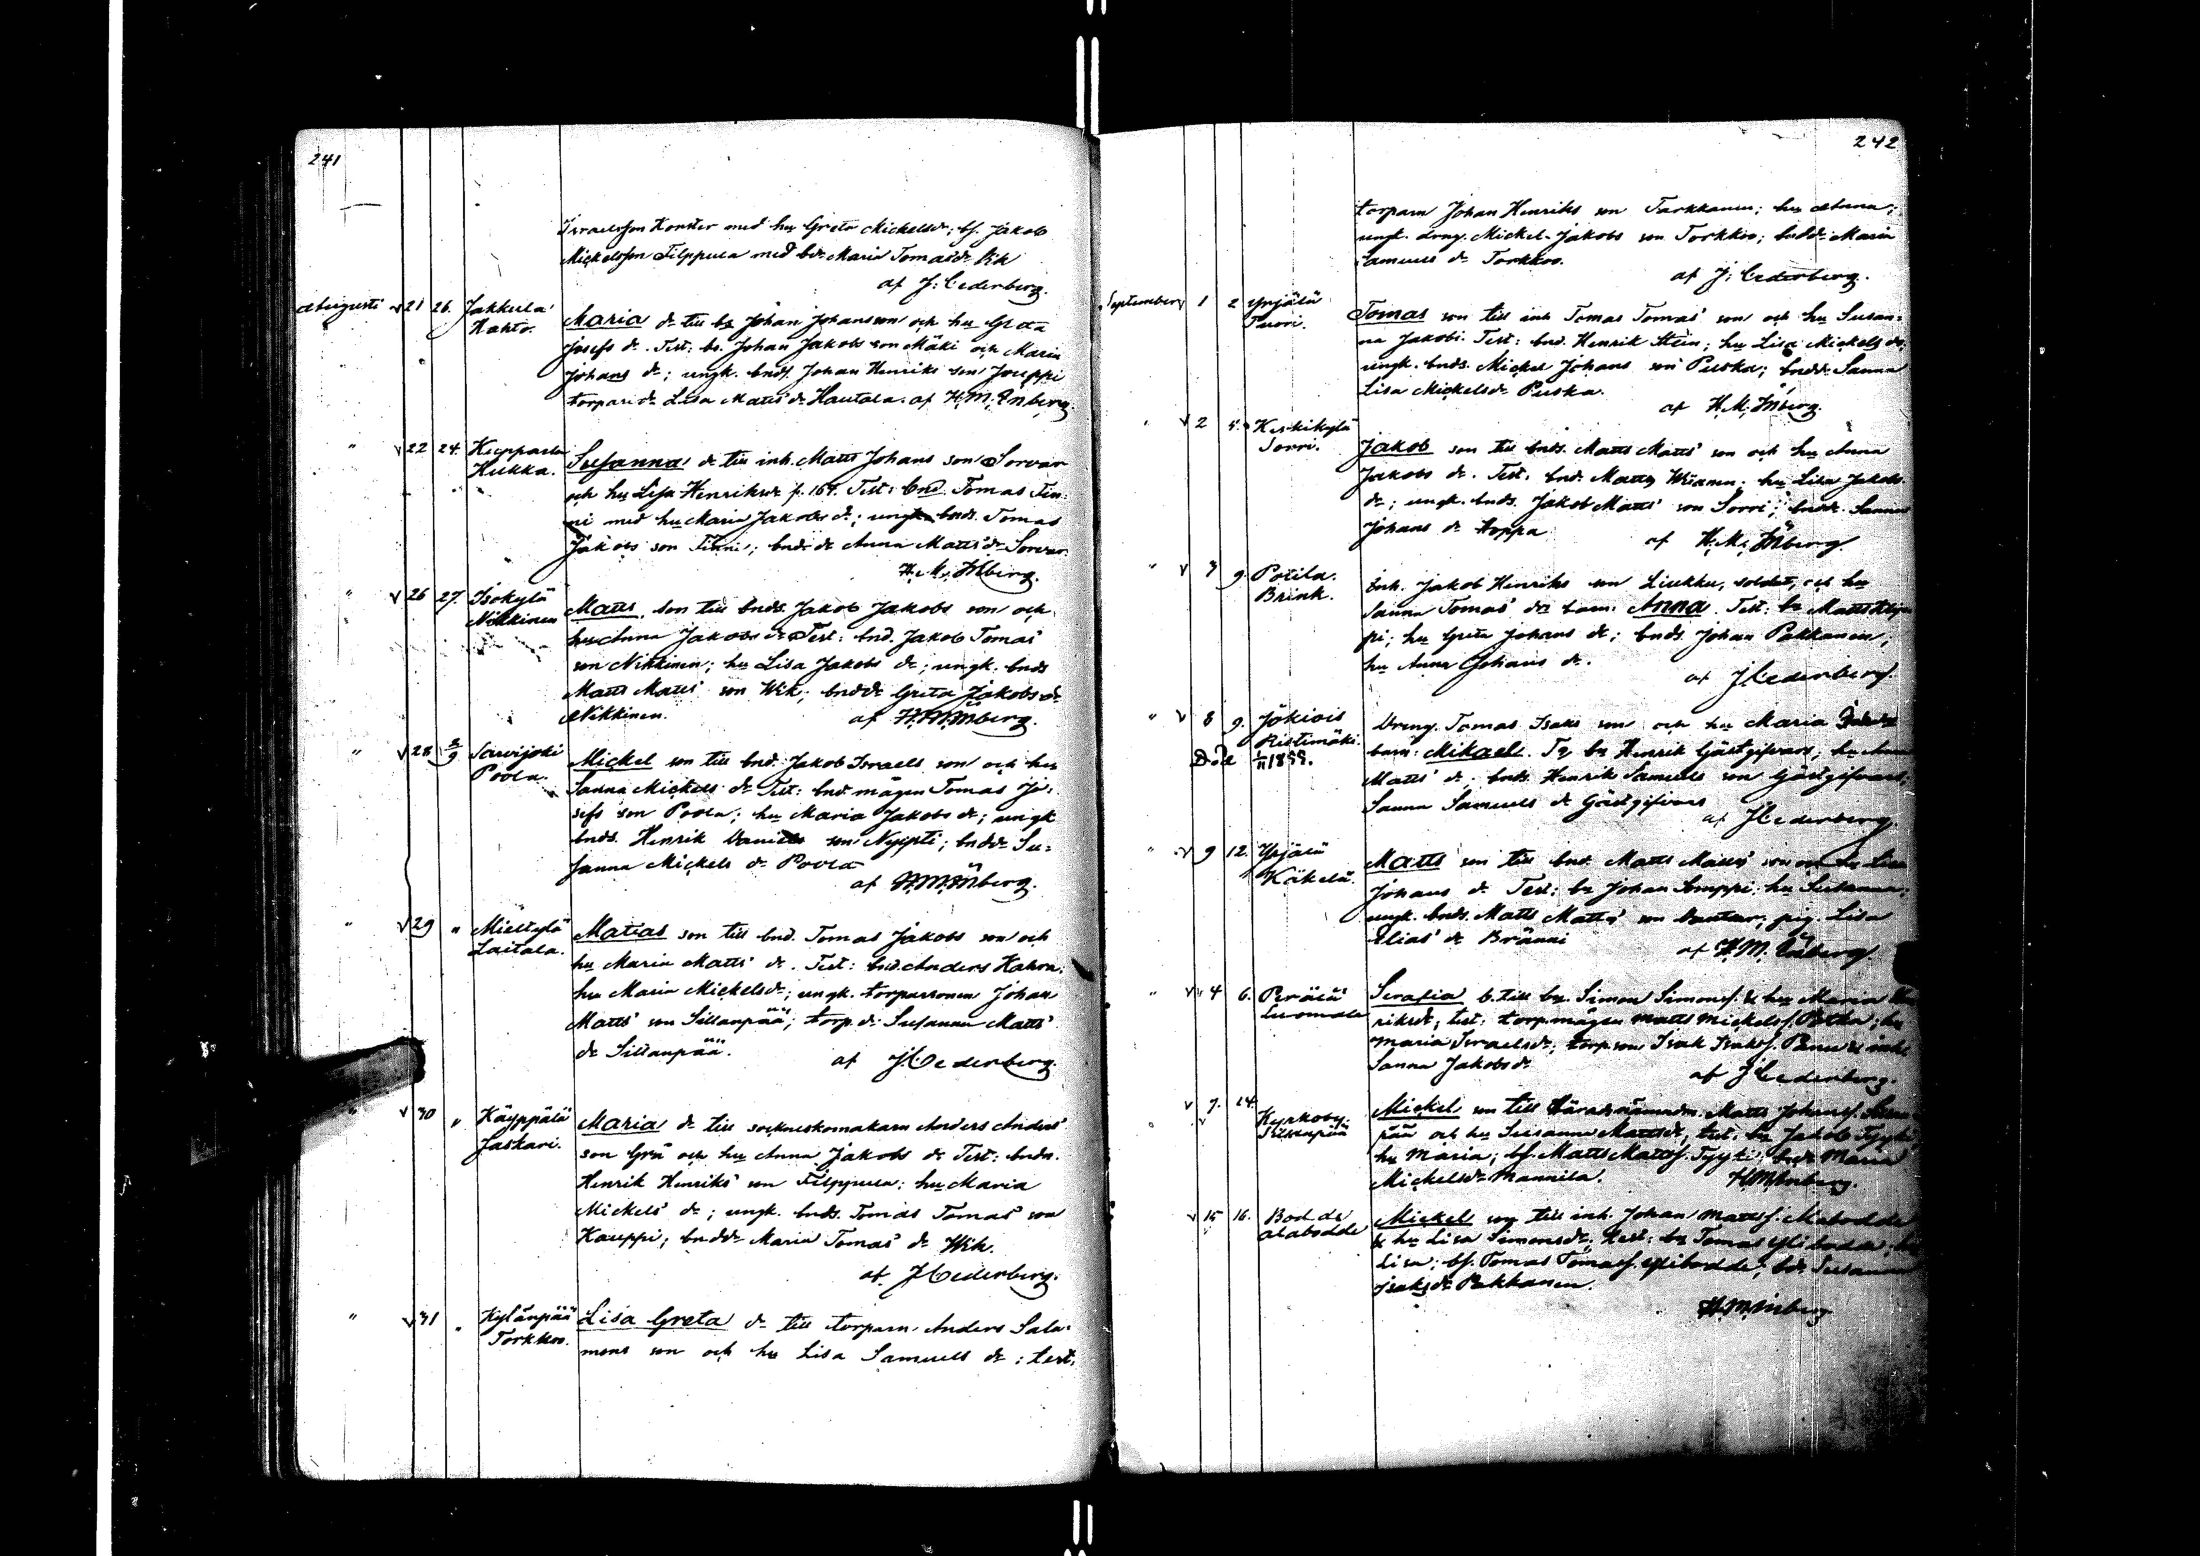 241
Israelsson Konster med hu Greta Mickelsdr; bs. Jakob
Mickelsson Filppula med bdr. Maria Tomasdr. Wik
af J: Cederberg.
Augusti v 21 26. Jakkula Kahto. Maria dr till bd Johan Johansson och hu Greta
Josefs dr. Test: bd. Johan Jakobs son Mäki och Maria
Johans dr; ungk. bnds. Johan Henriks son Jouppi
torparedr. Lisa Matts' dr Hautala. af H.M. Inberg
" v 22 24. Kukka. Susanna dr till inh. Matts Johans son Sorvar
och hu Lisa Henriksdr p. 164. Test: bnd. Tomas Fin-
ni med hu Maria Jakobs dr; ungk. bnds. Tomas
Jakobs son Finni; bnds dr Anna Matts' dr Sorvar
H. M. Inberg.
" v 26 27. Isokylä Nikkinen Matts son till bnds. Jakob Jakobs son och
hu Anna Jakobs dr. Test: bnd. Jakob Tomas'
son Nikkinen; hu Lisa Jakobs dr; ungk. bnds
Matts Matts' son Wik; bnddr Greta Jakobs dr
Nikkinen. af H.M. Inberg.
" v 28 2/9 Sarvijoki Poola. Mickel son till bnd. Jakob Israels son och hu
Sanna Mickels dr. Test: bnd. mågen Tomas Jo-
sefs son Poola; hu Maria Jakobs dr; ungk
bnds. Henrik Daniels son Nyypti; bnddr Su-
sanna Mickels dr Poola
af H.M. Inberg.
" v 29 " Mieltylä Laitala. Matias son till bnd. Tomas Jakobs son och
hu Maria Matts' dr. Test: bnd. Anders Kahra;
hu Maria Mickelsdr; ungk. torparsonen Johan
Matts' son Sillanpää; torp.dr Susanna Matts'
dr Sillanpää. af J. Cederberg.
" v 30 " Käyppälä Jaskari. Maria dr till sockneskomakarn Anders Anders'
son Grå och hu Anna Jakobs dr. Test: bndn.
Henrik Henriks' son Filppula; hu Maria
Mickels' dr; ungk. bnds. Tomas Tomas' son
Kauppi; bnddr Maria Tomas' dr Wik.
af J. Cederberg.
" v 31 " Kylänpää Torkkos. Lisa Greta dr till torparn Anders Salo-
mons son och hu Lisa Samuels dr; test:
242
torparn Johan Henriks son Tarkkanen; hu Anna;
ungk. dräng. Mickel Jakobs son Torkkos; bnddr Maria
Samuels dr Torkkos.
af J: Cederberg.
September 1 2 Yrjälä Tuori. Tomas son till inh Tomas Tomas' son och hu Susan-
na Jakobs. Test: bnd. Henrik Stein; hu Lisa Mickels dr;
ungk. bnds. Mickel Johans son Puska; bnddr Sanna
Lisa Mickelsdr Puska.
af H.M. Inberg.
v 2 5. Keskikylä Sorri. Jakob son till bnds. Matts Matts' son och hu Anna
Jakobs dr. Test: bnd. Matts; hu Lisa Jakobs
dr; ungk. bnds. Jakob Matts' son Sorri; bnddr. Sanna
Johans dr Hoppa af H.M. Inberg
" v 3 9. Potila. Brink. Inh. Jakob Henriks son Liukku, soldat, och hu
Sanna Tomas' dr barn: Anna. Test: bd Matts
pi; hu Greta Johans dr; bnds Johan Pakkanen;
hu Anna Johans dr.
af J Cederberg.
" v 8 9. Jokiois Ristimäki. Dreng. Tomas Isaks son och hu Maria
Död 1/11 1899. barn: Mikael. T: bd Henrik Gästgifvars; hu Anna
Matts' dr; bnds. Henrik Samuels son Gästgifvars;
Sanna Samuels dr Gästgifvars
af J Cederberg
" v 9 12. Yrjälä Käkelä. Matts son till bnd. Matts Matts' son och hu Lisa
Johans dr. Test: bd Johan Somppi hu Susanna;
ungk. bnds. Matts Matts' son; pig. Lisa
Elias' dr Bränni
af H.M. Inberg
" v 4 6. Perälä Luomala Serafia d. till bd. Simon Simonss. & hu Maria Hen-
riksdr; test: torp.mågen Matts Mickelss. Potka; hu
Maria Israelsdr; torp.son Isak Isakss. &
Sanna Jakobsdr
af J Cederberg.
v 7. 14. Kyrkoby Sillanpää Mickel son till Häradsnämndm. Matts Johanss. Sillan-
pää och hu Susanna Mattsdr; test: bd Jakob Tyyki
hu Maria; bs. Matts Mattss. Tyyki; bndr Maria
Mickelsdr Mannila. H M Inberg.
v 15 16. Bodde Alabodde Mickel son till inh. Johan Mattss. Alabodde
& hu Lisa Simonsdr; test: bd Tomas Ylibodde; hu
Lisa; bs. Tomas Tomass. Ylibodde; bdr. Susanna
Isaksdr Pakkanen.
H.M. Inberg